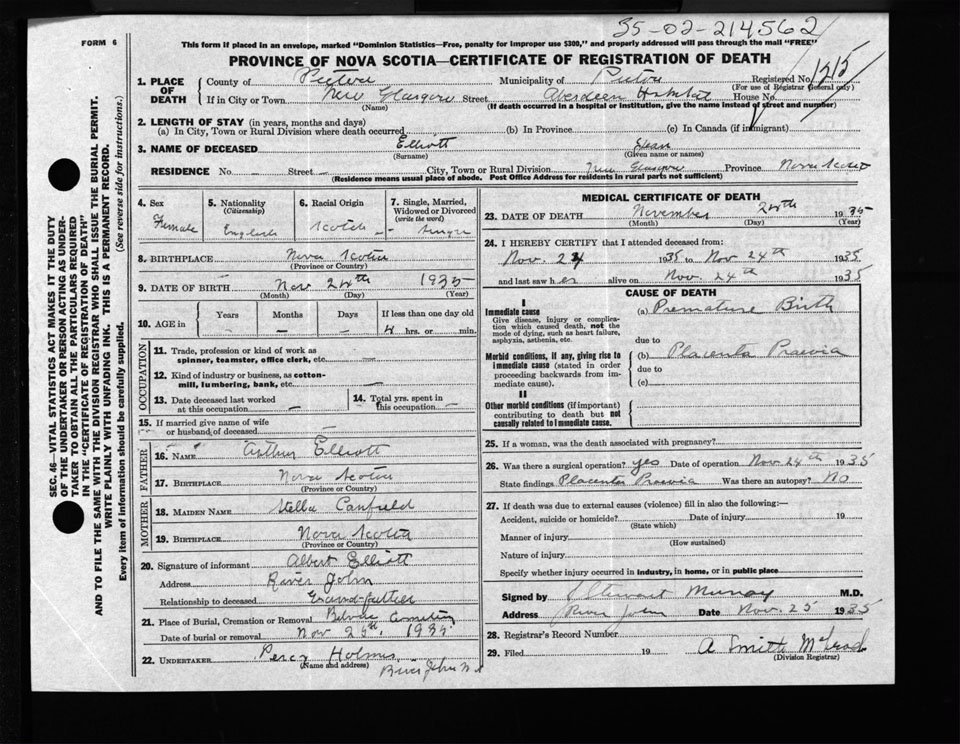 35-02-214562
FORM 6
This form if placed in an envelope, marked "Dominion Statistics—Free, penalty for improper use $300," and properly addressed will pass through the mail "FREE"
PROVINCE OF NOVA SCOTIA—CERTIFICATE OF REGISTRATION OF DEATH
1. PLACE OF DEATH County of Pictou Municipality of Pictou Registered No.
(For use of Registrar General only)
If in City or Town New Glasgow Street Aberdeen Hospital House No.
(Name) (If death occurred in a hospital or institution, give the name instead of street and number)
2. LENGTH OF STAY (in years, months and days)
(a) In City, Town or Rural Division where death occurred (b) In Province (c) In Canada (if immigrant)
3. NAME OF DECEASED Elliott Jean
(Surname) (Given name or names)
RESIDENCE No. — Street — City, Town or Rural Division New Glasgow Province Nova Scotia
(Residence means usual place of abode. Post Office Address for residents in rural parts not sufficient)
4. Sex Female
5. Nationality (Citizenship) English
6. Racial Origin Scotch
7. Single, Married, Widowed or Divorced (write the word) Single
8. BIRTHPLACE Nova Scotia
(Province or Country)
9. DATE OF BIRTH Nov 24th 1935
(Month) (Day) (Year)
10. AGE in Years — Months — Days — If less than one day old 4 hrs. or min.
OCCUPATION
11. Trade, profession or kind of work as spinner, teamster, office clerk, etc. —
12. Kind of industry or business, as cotton-mill, lumbering, bank, etc. —
13. Date deceased last worked at this occupation —
14. Total yrs. spent in this occupation —
15. If married give name of wife or husband of deceased —
FATHER
16. NAME Arthur Elliott
17. BIRTHPLACE Nova Scotia
(Province or Country)
MOTHER
18. MAIDEN NAME Stella Canfield
19. BIRTHPLACE Nova Scotia
(Province or Country)
20. Signature of informant Albert Elliott
Address River John
Relationship to deceased Grand-father
21. Place of Burial, Cremation or Removal Cemetery
Date of burial or removal Nov 25th. 1935
22. UNDERTAKER Percy Holmes
(Name and address) River John N.S
MEDICAL CERTIFICATE OF DEATH
23. DATE OF DEATH November 24th 1935
(Month) (Day) (Year)
24. I HEREBY CERTIFY that I attended deceased from:
Nov. 24 1935 to Nov 24th 1935
and last saw her alive on Nov. 24th 1935
CAUSE OF DEATH
I
Immediate cause (a) Premature Birth
Give disease, injury or complication which caused death, not the mode of dying, such as heart failure, asphyxia, asthenia, etc.
due to
Morbid conditions, if any, giving rise to immediate cause (stated in order proceeding backwards from immediate cause). (b) Placenta Praevia
due to
(c)
II
Other morbid conditions (if important) contributing to death but not causally related to immediate cause.
25. If a woman, was the death associated with pregnancy?
26. Was there a surgical operation? yes Date of operation Nov 24th 1935
State findings Placenta Praevia Was there an autopsy? No
27. If death was due to external causes (violence) fill in also the following:—
Accident, suicide or homicide? Date of injury 19
(State which)
Manner of injury
(How sustained)
Nature of injury
Specify whether injury occurred in industry, in home, or in public place
Signed by Stewart Murray M.D.
Address River John Date Nov. 25 1935
28. Registrar's Record Number
29. Filed 19 A Smith McLeod
(Division Registrar)
SEC. 46—VITAL STATISTICS ACT MAKES IT THE DUTY
OF THE UNDERTAKER OR PERSON ACTING AS UNDER-
TAKER TO OBTAIN ALL THE PARTICULARS REQUIRED
IN THE "CERTIFICATE OF REGISTRATION OF DEATH"
AND TO FILE THE SAME WITH THE DIVISION REGISTRAR WHO SHALL ISSUE THE BURIAL PERMIT.
WRITE PLAINLY WITH UNFADING INK. THIS IS A PERMANENT RECORD.
Every item of information should be carefully supplied. (See reverse side for instructions.)